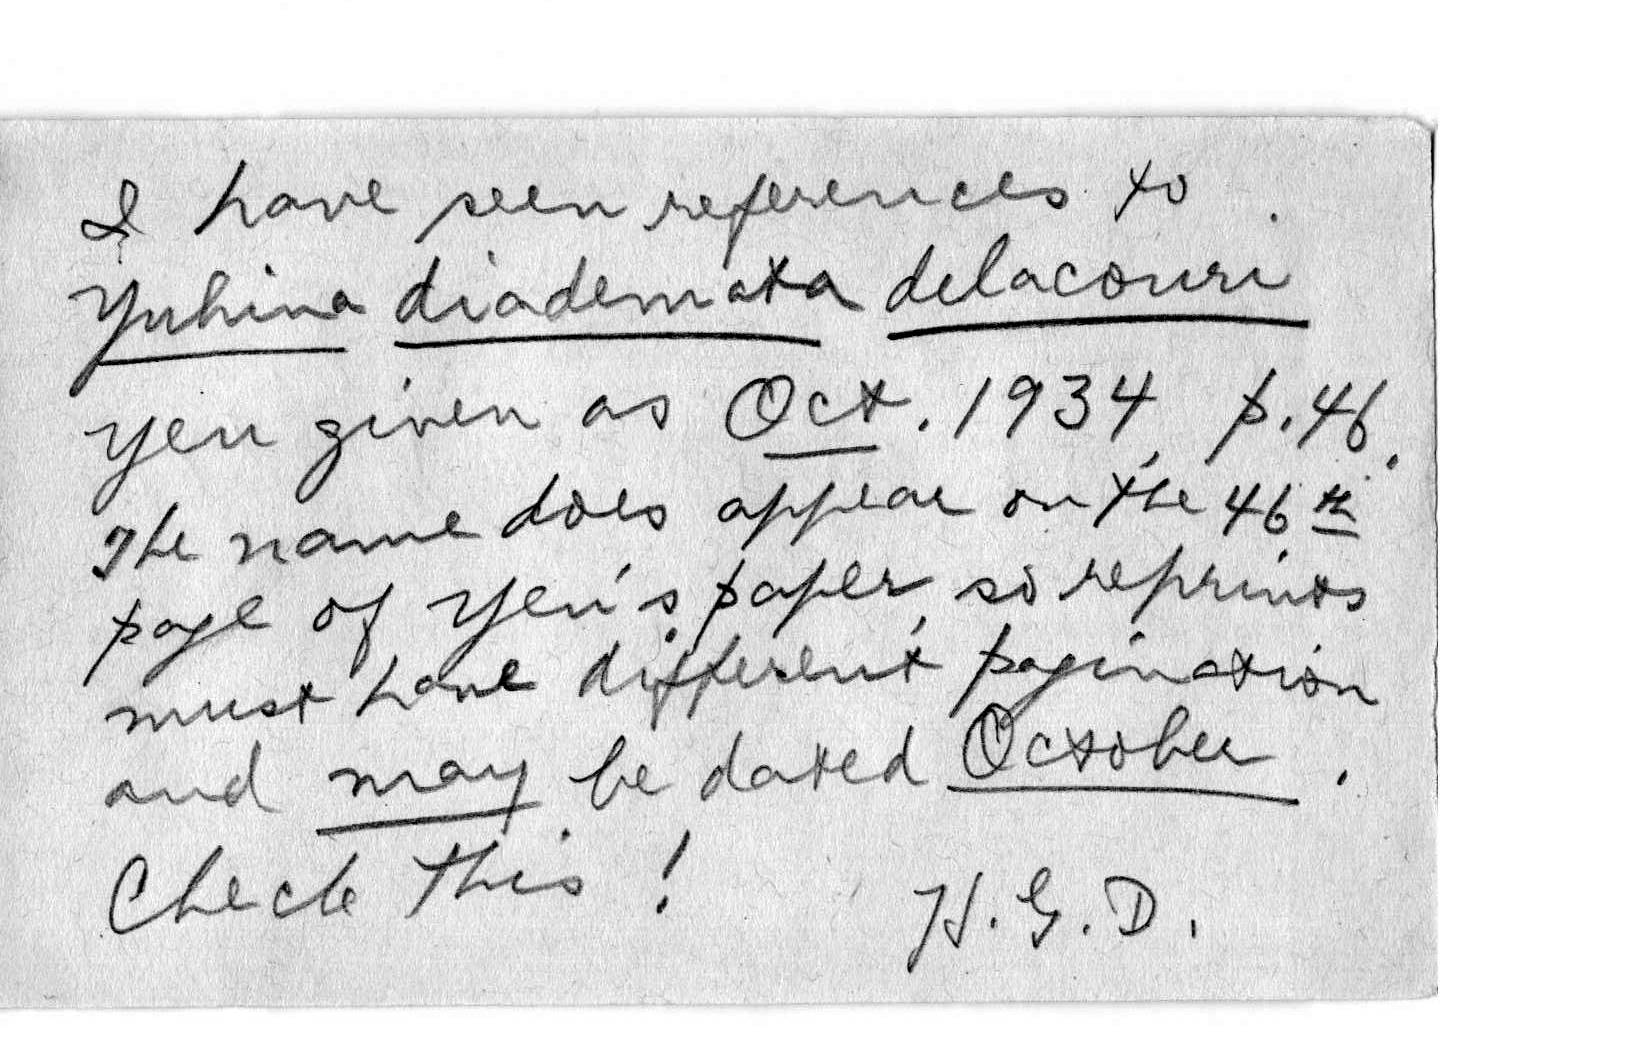 I have seen references to
Yuhina diademata delacouri
Yen given as Oct. 1934, p. 46.
The name does appear on the 46th
page of Yen's paper, so reprints
must have different pagination
and may be dated October.
Check this! H.G.D.